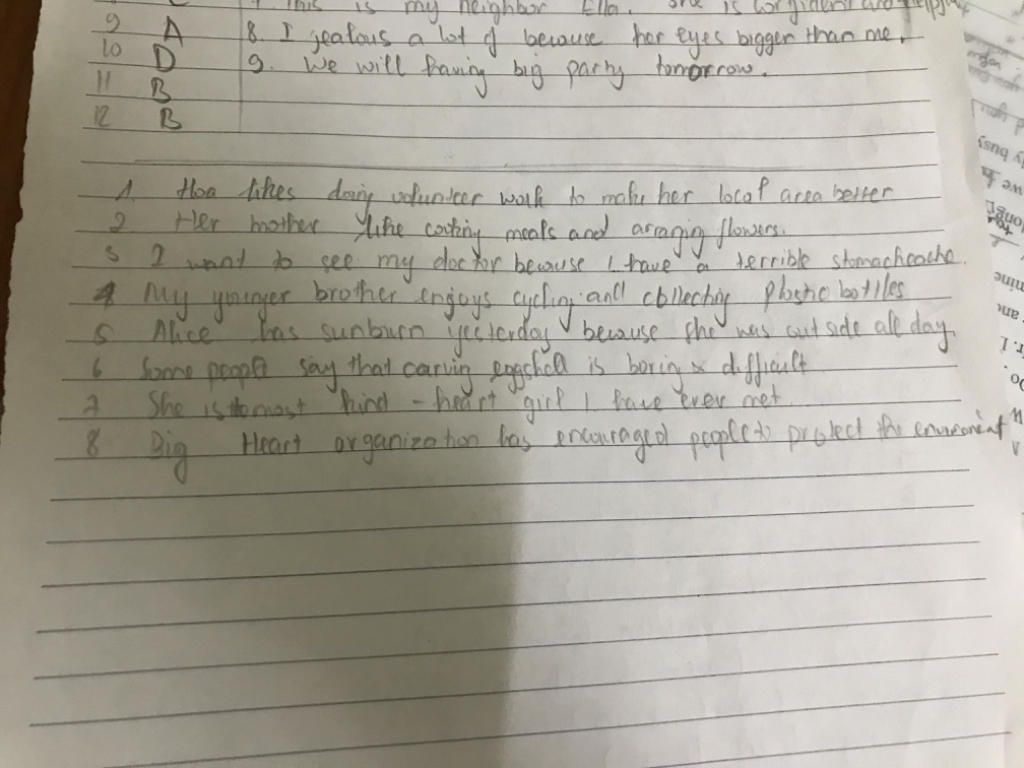 This is my neighbor Ella. She is confident and
9 A 8. I jealous a lot of because her eyes bigger than me.
10 D 9. We will having big party tomorrow.
11 B
12 B
1. Hoa likes doing volunteer work to make her local area better
2 Her mother like cooking meals and arraging flowers.
3 I want to see my doctor because I have a terrible stomacheache
4 My younger brother enjoys cycling and collecting plastic bottles
5 Alice has sunburn yesterday because she was outside all day
6 Some people say that carving eggshell is boring & difficult
7 She is the most kind - heart girl I have ever met
8 Big Heart organization has encouraged people to protect the